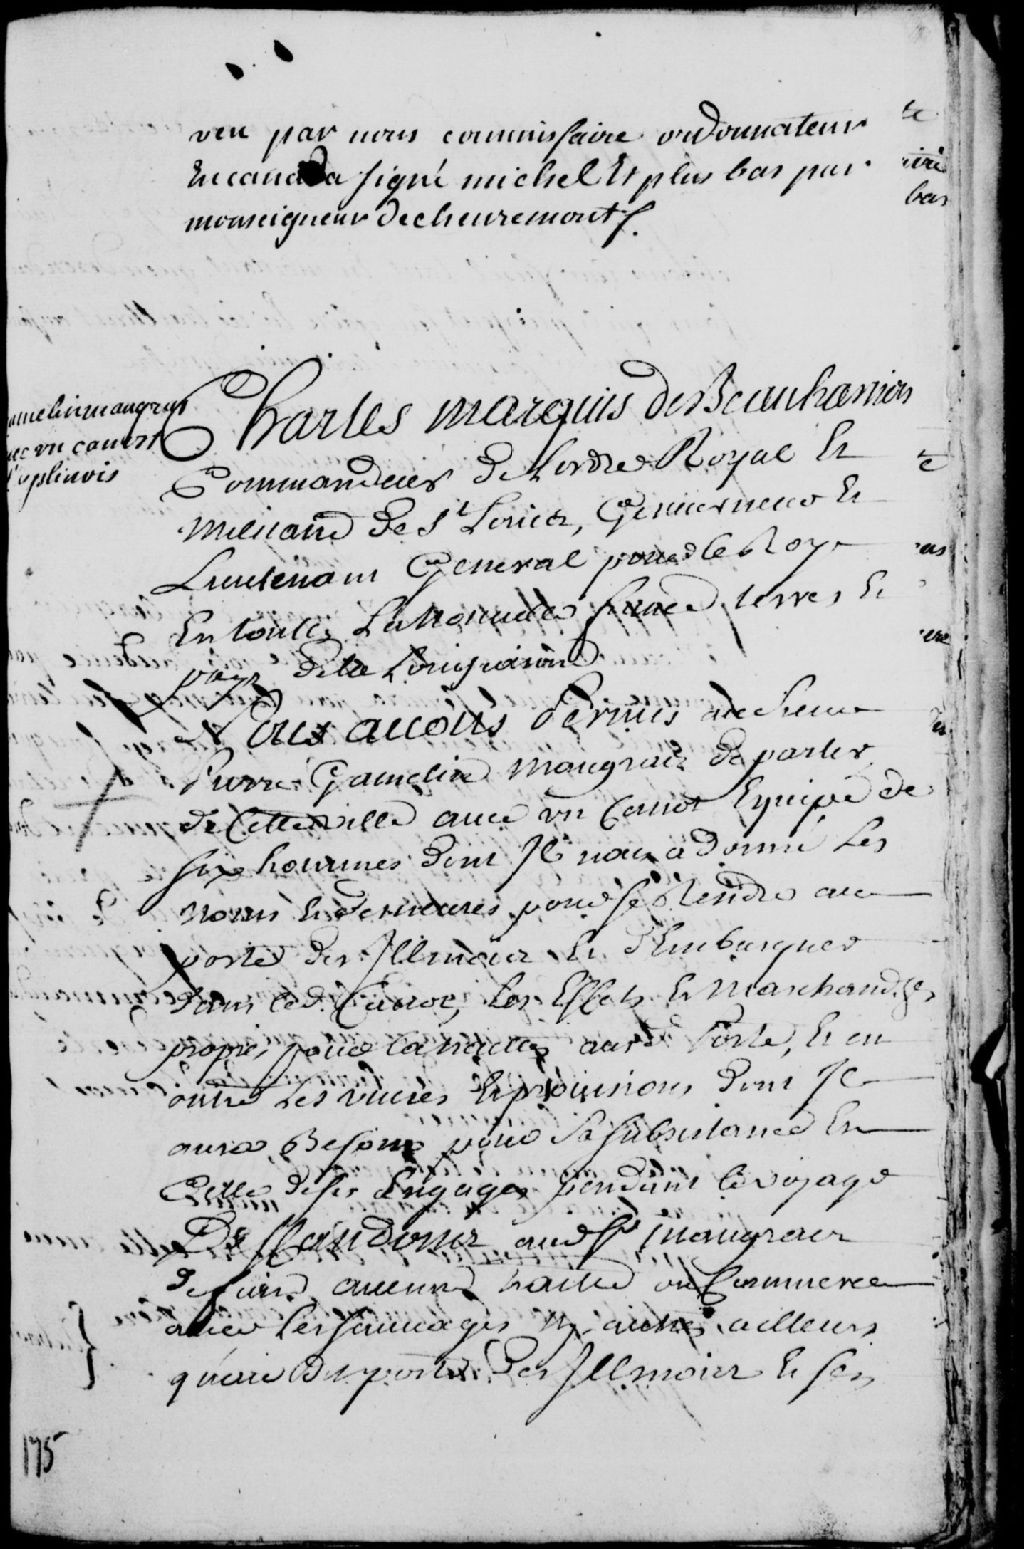 veu par nous commissaire ordonnateur
En canada signé michel Et plus bas par
monseigneur Decheuremont
gamelin maugras
auec vn canot
Charles marquis DeBeauharnois
Commandeur De Lordre Royal Et
Militaire De St Louis, Gouuerneur Et
Lieutenant General pour le Roy
En toutte La Nouuelle france, terres Et
pays De la Louisianne
Nous auons Permis au Sieur
Pierre Gamelin Maugras De partir
de Cette Ville auec vn Canot Equipé de
six hommes dont Il nous a donné Les
noms Et demeures pour se Rendre au
poste des Illinois Et d'Embarquer
dans led. Canot, Les Effets Et Marchandises
propres pour la traitte aud. Poste, Et en
outre Les viures Et prouisions dont Il
aura Besoin pour Sa Subsistance Et
Celle de ses Engagés pendant le voyage
Deffendons aud. Sr. Maugras
de faire aucune traitte ou Commerce
auec les sauuages ny autres, ailleurs
qu'au Dit poste Des Illinois Et ses
175